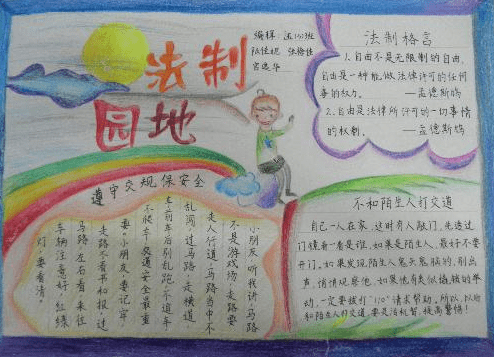 法制
园地
编辑：
阮佳妮 张榕佳
法制格言
1.自由不是无限制的自由，
自由是一种能做法律许可的任何
事的权力。
——孟德斯鸠
2.自由是法律所许可的一切事情
的权利。
——孟德斯鸠
遵守交规保安全
小朋友听我讲，马路
不是游戏场，走路要
走人行道，马路当中不
乱闯，过马路，走横道
车前车后别乱跑，不追车
不候车，交通安全最重
要。小朋友，要记牢，
走路不看书和报，过
马路，左右看，来往
车辆注意好，红绿
灯，要看清，
不和陌生人打交道
自己一人在家，这时有人敲门，先透过
门镜看一看是谁，如果是陌生人，最好不要
开门。如果发现陌生人鬼头鬼脑的，别出
声，悄悄观察他，如果他有类似撬锁的举
动，一定要拨打“110”请求帮助。所以，以后
和陌生人打交道，要灵活机智，提高警惕！